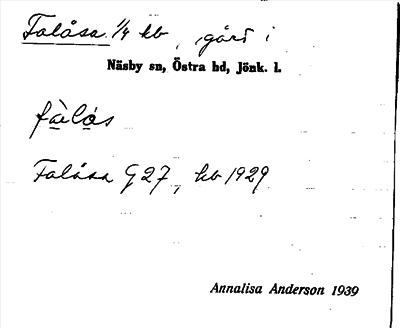 Falåsa. 1/4 kb, gård i
Näsby sn, Östra hd, Jönk. l.
fàlås
Falåsa G27, kb 1929
Annalisa Anderson 1939